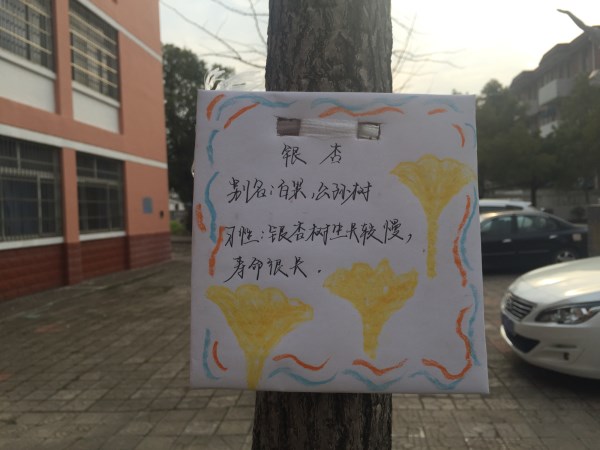 银杏
别名:白果,公孙树
习性:银杏树生长较慢,
寿命很长.